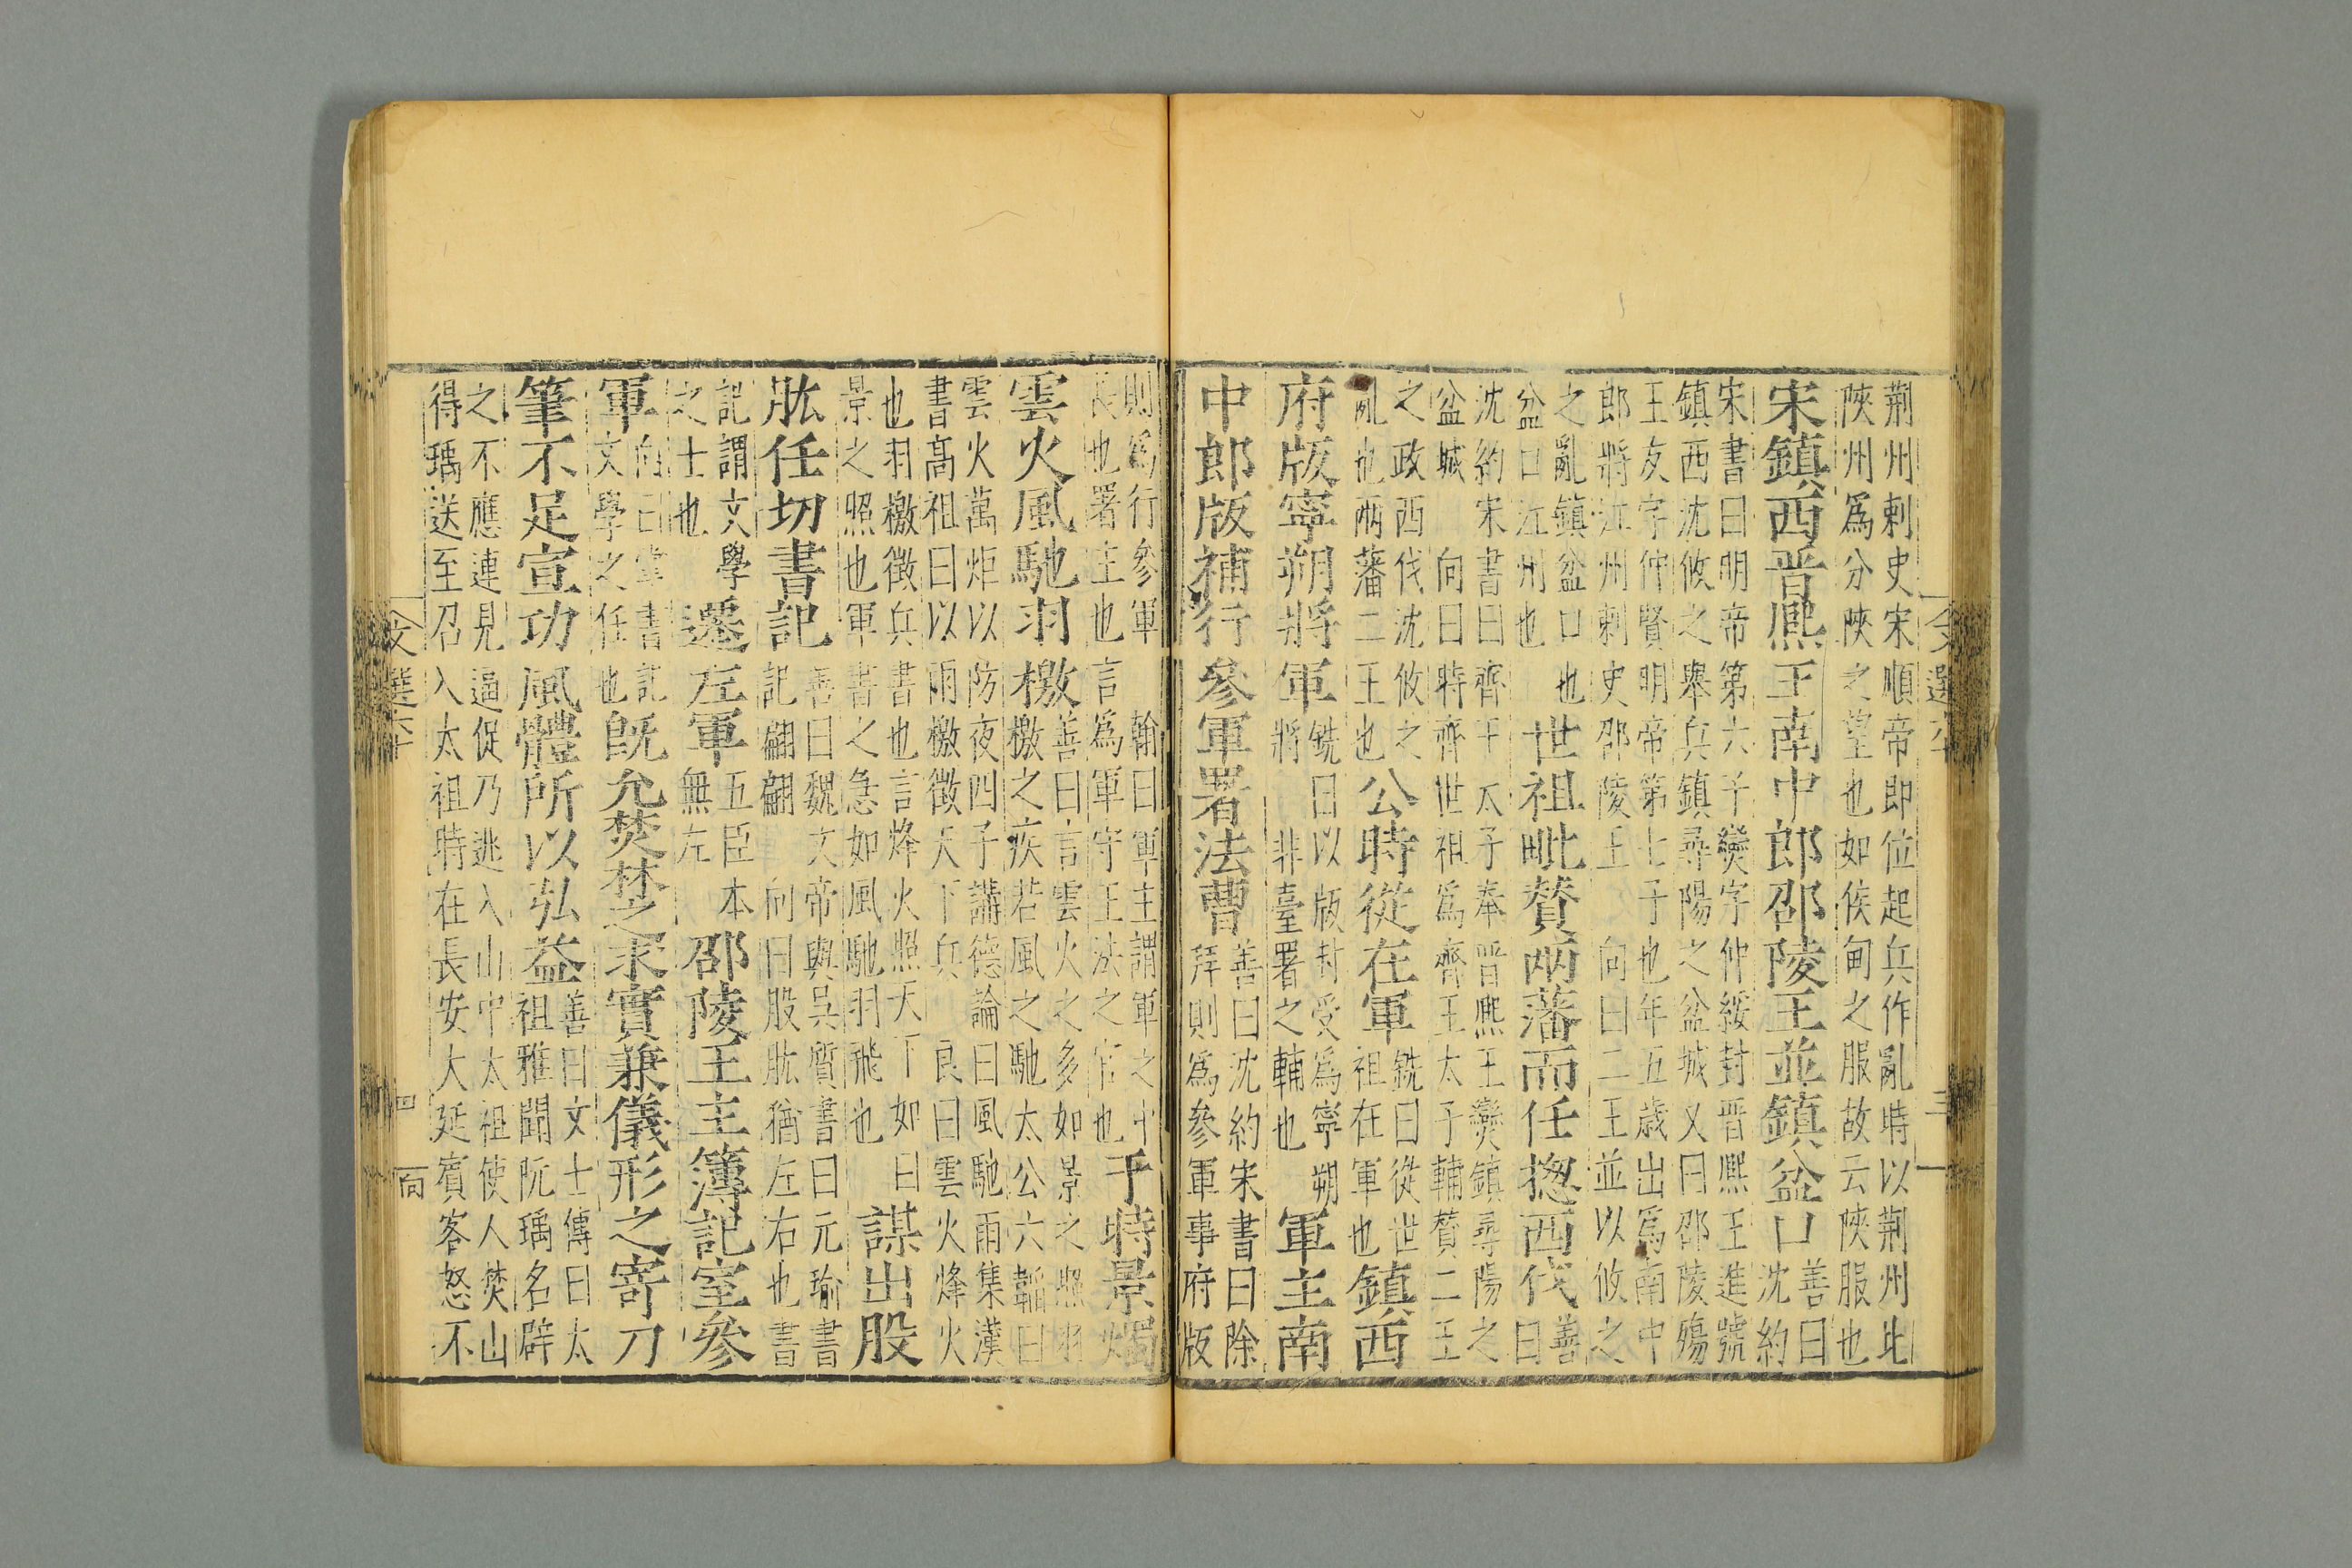 荆州剌史宋順帝即位起兵作亂時以荆州比
陜州爲分陜之望也如侯甸之服故云陜服也
宋鎮西晋熈王南中郎邵陵王並鎮盆口善曰
沈約
宋書曰明帝第六子爕字仲綏封晋熈王進號
鎮西沈攸之舉兵鎮尋陽之盆城又曰邵陵殤
王友字仲賢明帝第七子也年五歳出爲南中
郎將江州剌史邵陵王 向曰二王並以攸之
之亂鎮盆口也
盆口江州也
世祖毗賛兩藩而任揔西伐善
曰
沈約宋書曰齊王太子奉晋熈王爕鎮尋陽之
盆城 向曰時齊世祖爲齊王太子輔賛二王
之政西伐沈攸之
亂也兩藩二王也
公時從在軍銑曰從世
祖在軍也
鎮西
府版寧朔將軍銑曰以版封受爲寧朔
將 非臺署之輔也
軍主南
中郎版補行參軍署法曹善曰沈約宋書曰除
拜則爲參軍事府版
則爲行參軍 翰曰軍主謂軍之
長也署主也言爲軍守王法之官也
于時景燭
雲火風馳羽檄善曰言雲火之多如景之照羽
檄之疾若風之馳太公六韜曰
雲火萬炬以防夜四子講德論曰風馳雨集漢
書髙祖曰以雨檄徴天下兵 良曰雲火烽火
也羽檄徴兵書也言烽火照天下如日
景之照也軍書之急如風馳羽飛也
謀出股
肱任切書記善曰魏文帝與呉質書曰元瑜書
記翩翩 向曰股肱猶左右也書
記謂文學
之士也
遷左軍五臣本
無左
邵陵王主簿記室參
軍向曰掌書記
文學之任也
旣允焚林之求實兼儀形之寄刀
筆不足宣功風體所以弘益善曰文士傳曰太
祖雅聞阮瑀名辟
之不應連見逼促乃逃入山中太祖使人焚山
得瑀送至召入太祖時在長安大延賓客怒不
文選六十
四